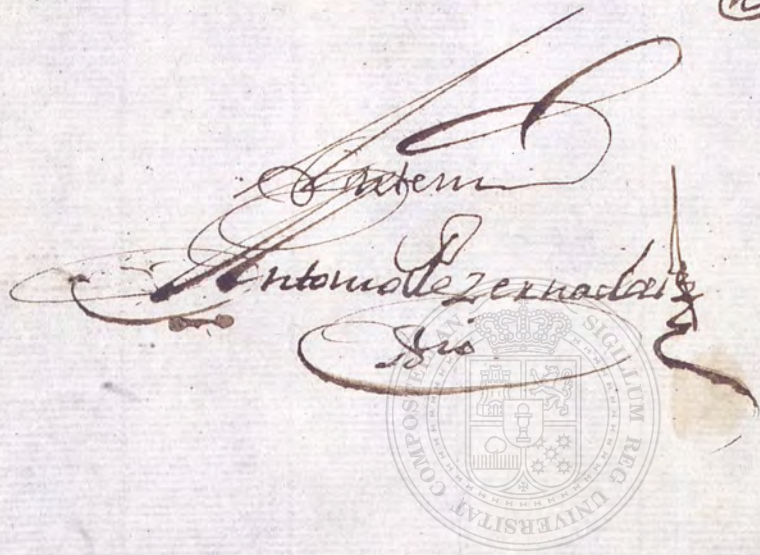 Antem
Antonio de Zernadas
Srio
SIGILLUM REG UNIVERSITAT COMPOSTELAN